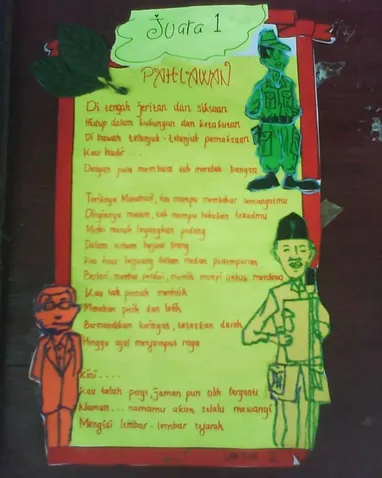 Juara 1
PAHLAWAN
Di tengah jeritan dan siksaan
Hidup dalam kurungan dan ketakutan
Di bawah telunjuk - telunjuk pemaksaan
Kau hadir....
Dengan jiwa membara tak merelah bangsa
Teriknya Matahari, tak mampu membakar semangatmu
Dinginnya malam, tak mampu bekukan tekadmu
Meski musuh layangkan pedang
Dalam perang
Kau terus berjuang dalam medan pertempuran
Berlari, untuk merdeka
Kau tak pernah merintih
Menahan perih dan letih
Bermandikan keringat, teteskan darah
Hingga ajal menjemput raga
Kini....
Kau telah pergi, jaman pun tlah berganti
Namun... namamu akan selalu mewangi
Mengisi lembar - lembar sejarah